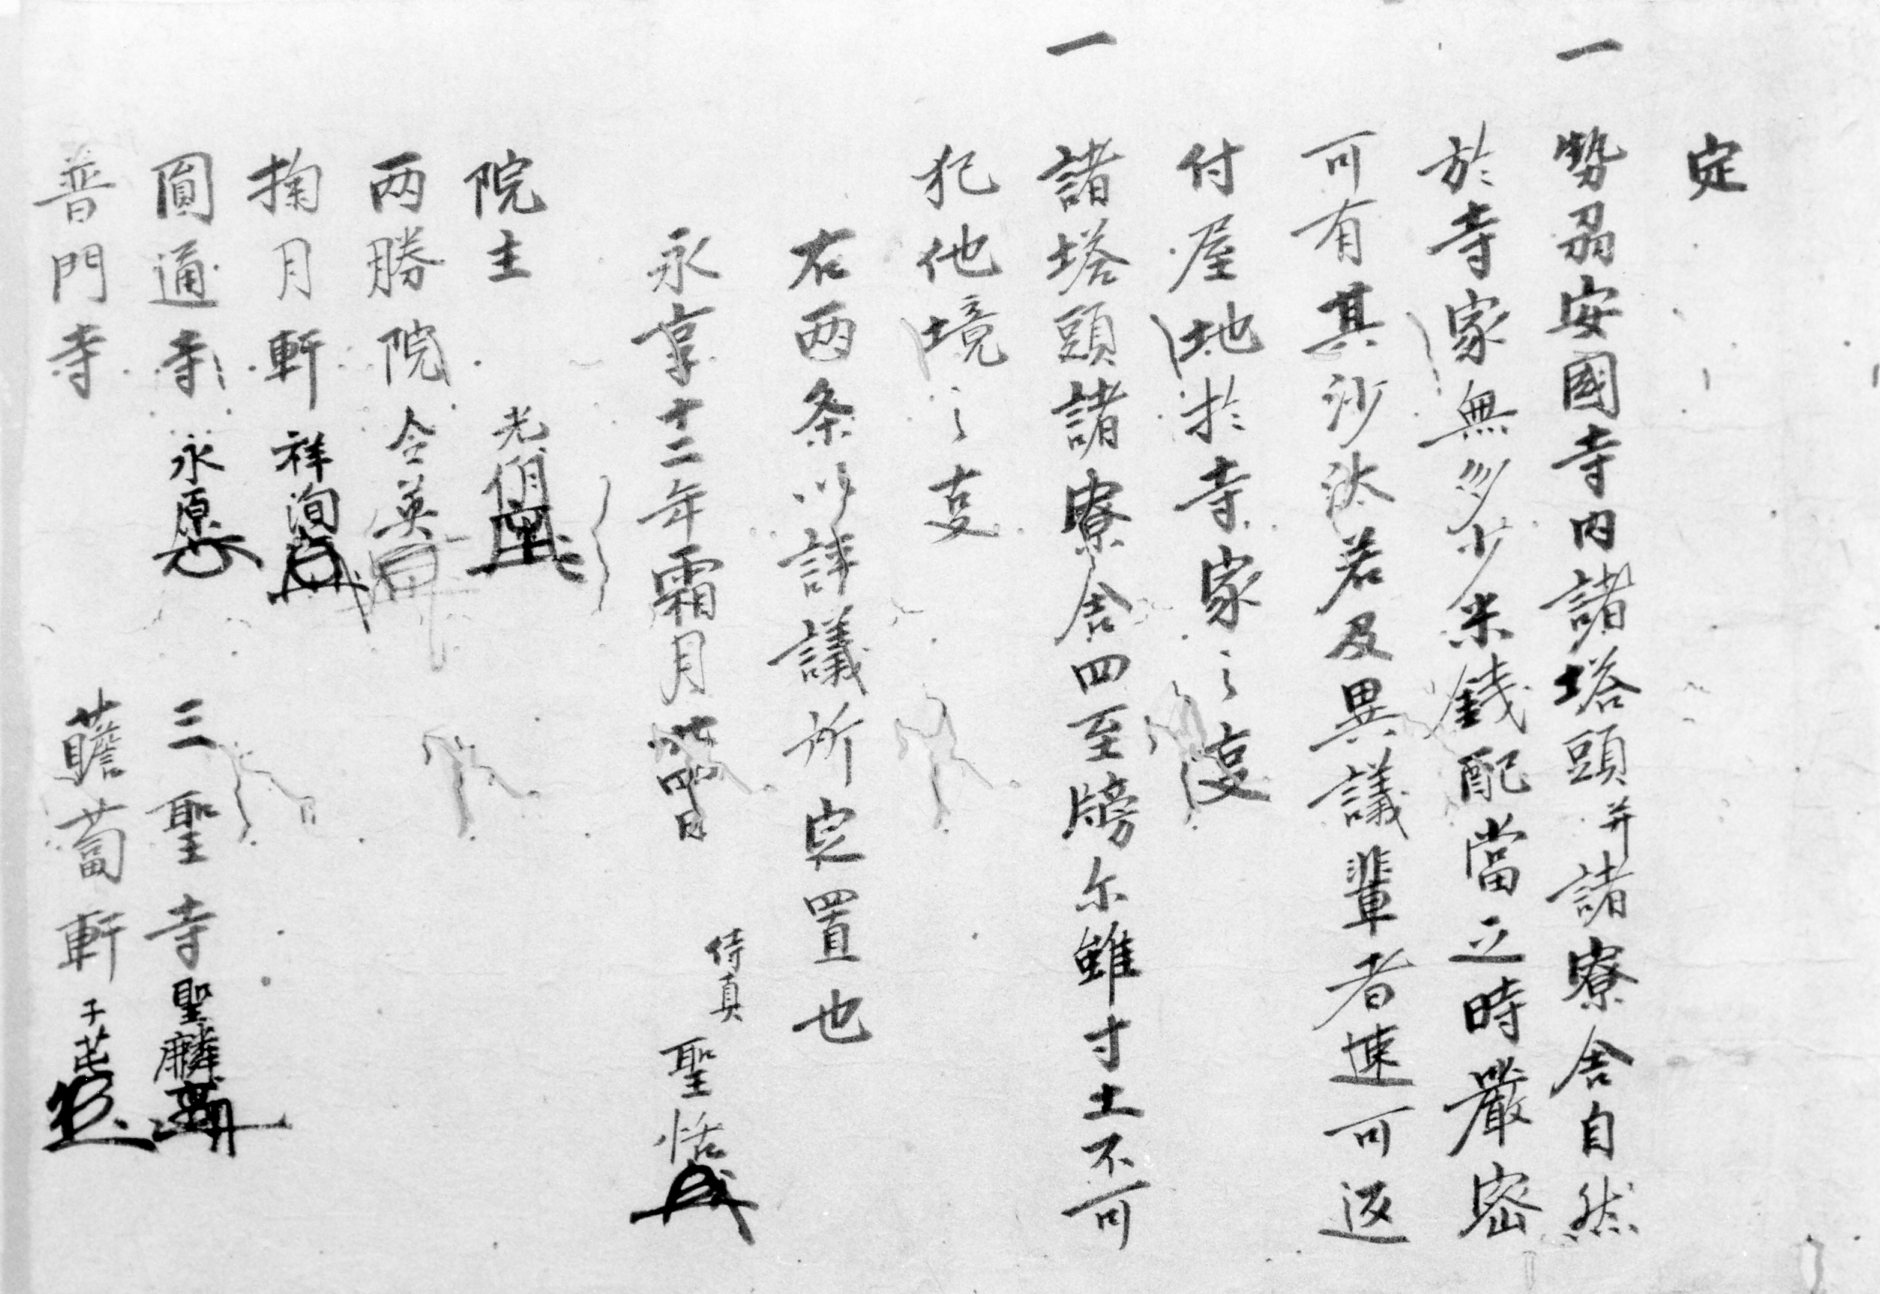 定
一 勢刕安國寺内諸塔頭并諸寮舎自然
於寺家無多少米銭配當之時嚴密
可有其沙汰若及異議輩者速可返
付屋地於寺家之㕝
一 諸塔頭諸寮舎四至牓尓雖寸土不可
犯他境之㕝
右両条以評議所定置也
永享十二年霜月廿四日
侍真 聖恬
院主 光
両勝院 令英
掬月軒 祥洵
圓通寺 永原 三聖寺 聖麟
普門寺 薝蔔軒 子